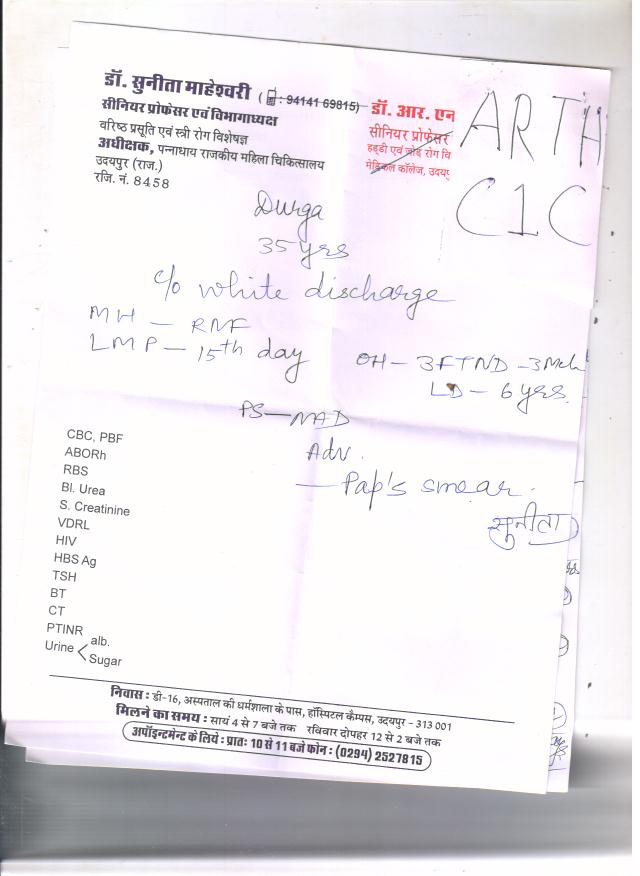 डॉ. सुनीता माहेश्वरी ( : 94141 69815)
सीनियर प्रोफेसर एवं विभागाध्यक्ष
वरिष्ठ प्रसूति एवं स्त्री रोग विशेषज्ञ
अधीक्षक, पन्नाधाय राजकीय महिला चिकित्सालय
उदयपुर (राज.)
रजि. नं. 8458
डॉ. आर. एन
सीनियर प्रोफेसर
हड्डी एवं जोड़ रोग वि
मेडिकल कॉलेज, उदयपु
ARTH
C1C
Durga
35 yrs
c/o white discharge
MH — RMF
LMP — 15th day
OH — 3FTND - 3Mch
LD — 6 yrs.
PS — NAD
Adv.
— Pap's smear.
सुनीता
CBC, PBF
ABORh
RBS
Bl. Urea
S. Creatinine
VDRL
HIV
HBS Ag
TSH
BT
CT
PTINR
Urine < alb.
Sugar
निवास : डी-16, अस्पताल की धर्मशाला के पास, हॉस्पिटल कैम्पस, उदयपुर - 313 001
मिलने का समय : सायं 4 से 7 बजे तक रविवार दोपहर 12 से 2 बजे तक
अपॉइन्टमेन्ट के लिये : प्रातः 10 से 11 बजे फोन : (0294) 2527815